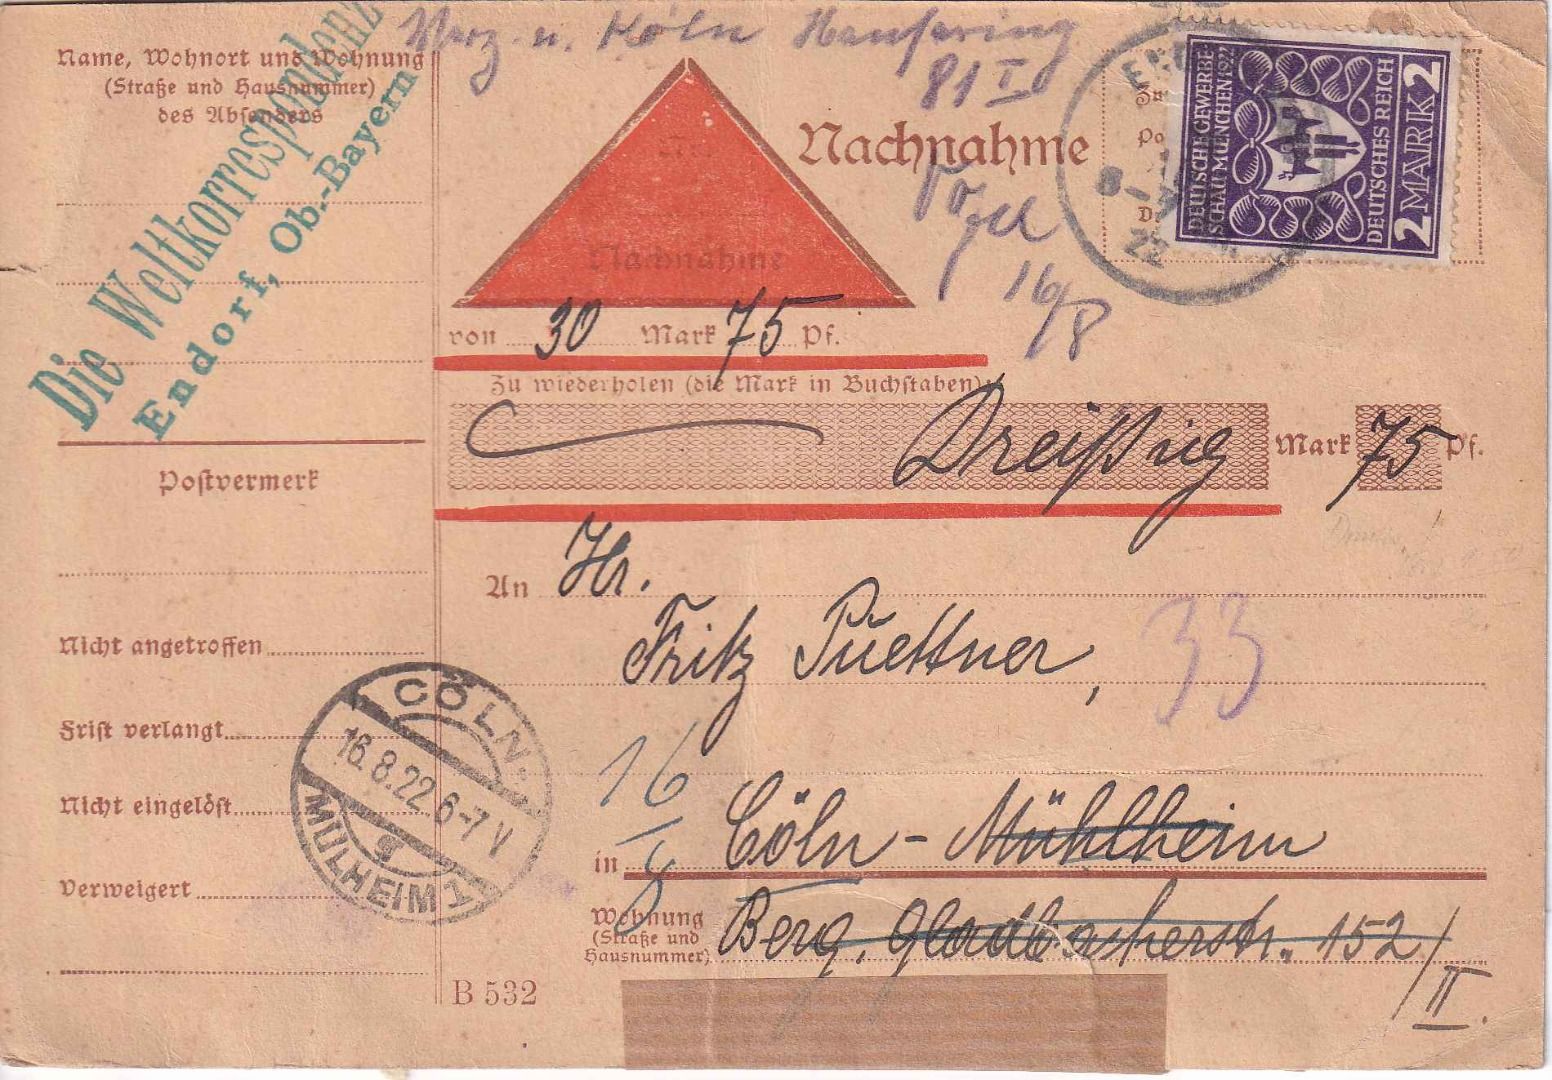 Verz. n. Köln Hansaring
81 I
Vogel
16/8
Name, Wohnort und Wohnung
(Straße und Hausnummer)
des Absenders
Die Weltkorrespondenz
Endorf, Ob.-Bayern
Nachnahme
Nachnahme
DEUTSCHE GEWERBE
SCHAU MÜNCHEN 1922
DEUTSCHES REICH
2 MARK 2
8-
22
von 30 Mark 75 Pf.
Zu wiederholen (die Mark in Buchstaben):
Dreißig Mark 75 Pf.
Postvermerk
An Hr.
Fritz Puettner,
33
Nicht angetroffen
Frist verlangt
Nicht eingelöst
Verweigert
CÖLN-
16.8.22 6-7 V
g
MÜLHEIM 1
16/8
in Cöln-Mühlheim
Wohnung
(Straße und
Hausnummer)
Berg. Gladbacherstr. 152/
II.
B 532